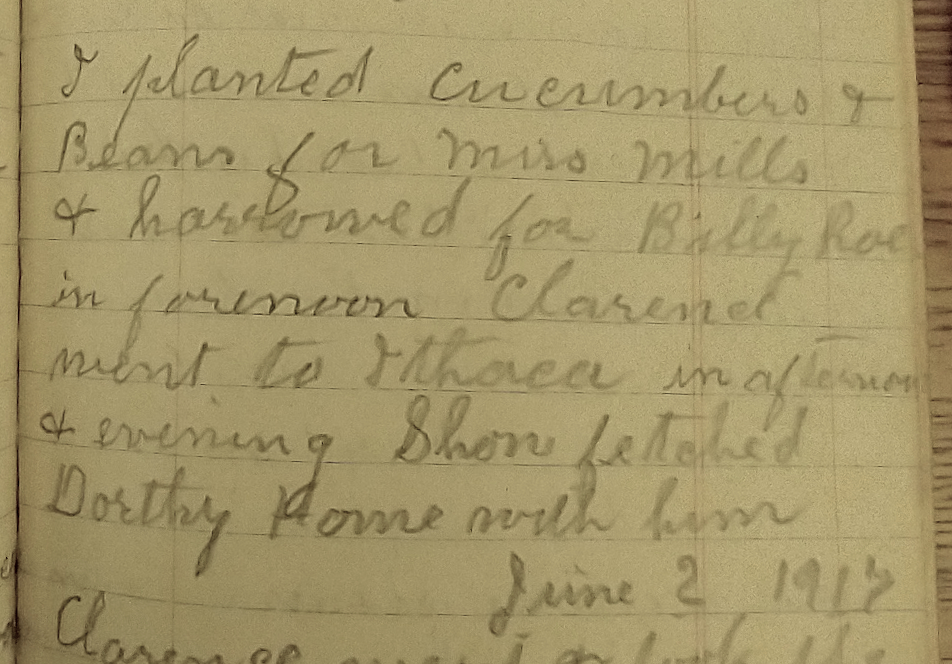 I planted Cucumbers &
Beans for Miss Mills
& harrowed for Billy Roe
in forenoon Clarend
went to Ithaca in afternoon
& evening Shon fetched
Dorthy Home with him
June 2 1917
Clarence